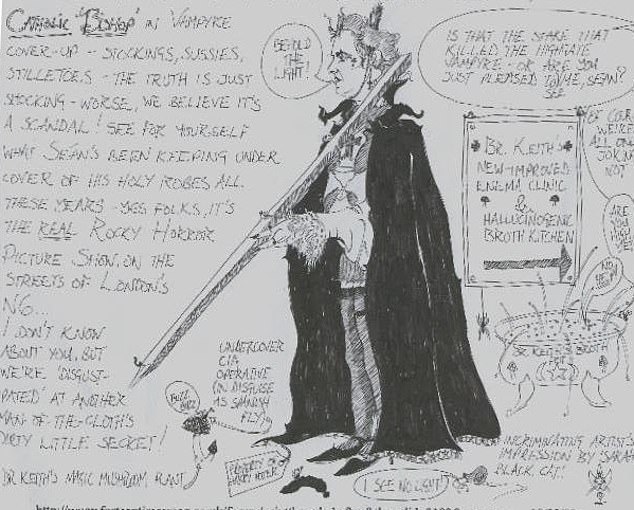 CATHOLIC 'BISHOP' IN VAMPYRE
COVER-UP - STOCKINGS, SUSSIES,
STILLETOES - THE TRUTH IS JUST
SHOCKING - WORSE, WE BELIEVE IT'S
A SCANDAL! SEE FOR YOURSELF
WHAT SEÁN'S BEEN KEEPING UNDER
COVER OF HIS HOLY ROBES ALL
THESE YEARS - YES FOLKS, IT'S
THE REAL ROCKY HORROR
PICTURE SHOW, ON THE
STREETS OF LONDON'S
N6...
I DON'T KNOW
ABOUT YOU, BUT
WE'RE 'DISGUST-
PATED' AT ANOTHER
MAN-OF-THE-CLOTH'S
DIRTY LITTLE SECRET!
DR KEITH'S MAGIC MUSHROOM PLANT
BEHOLD
THE
LIGHT!
IS THAT THE STAKE THAT
KILLED THE HIGHGATE
VAMPYRE - OR ARE YOU
JUST PLEASED TO ME, SEÁN?
SEE
DR. KEITH'S
NEW-IMPROVED
ENEMA CLINIC
&
HALLUCINOGENIC
BROTH KITCHEN
WE'RE
ALL ON
JOKIN
NOT
ARE
YOU
DR KEITH'S BROTH
UNDERCOVER
CIA
OPERATIVE
(IN DISGUISE
AS SPANISH
FLY)
BUZZ
PROPERTY OF
I SEE NO LIGHT!
INCRIMINATING ARTIST'S
IMPRESSION BY SARAH
BLACK CAT!!